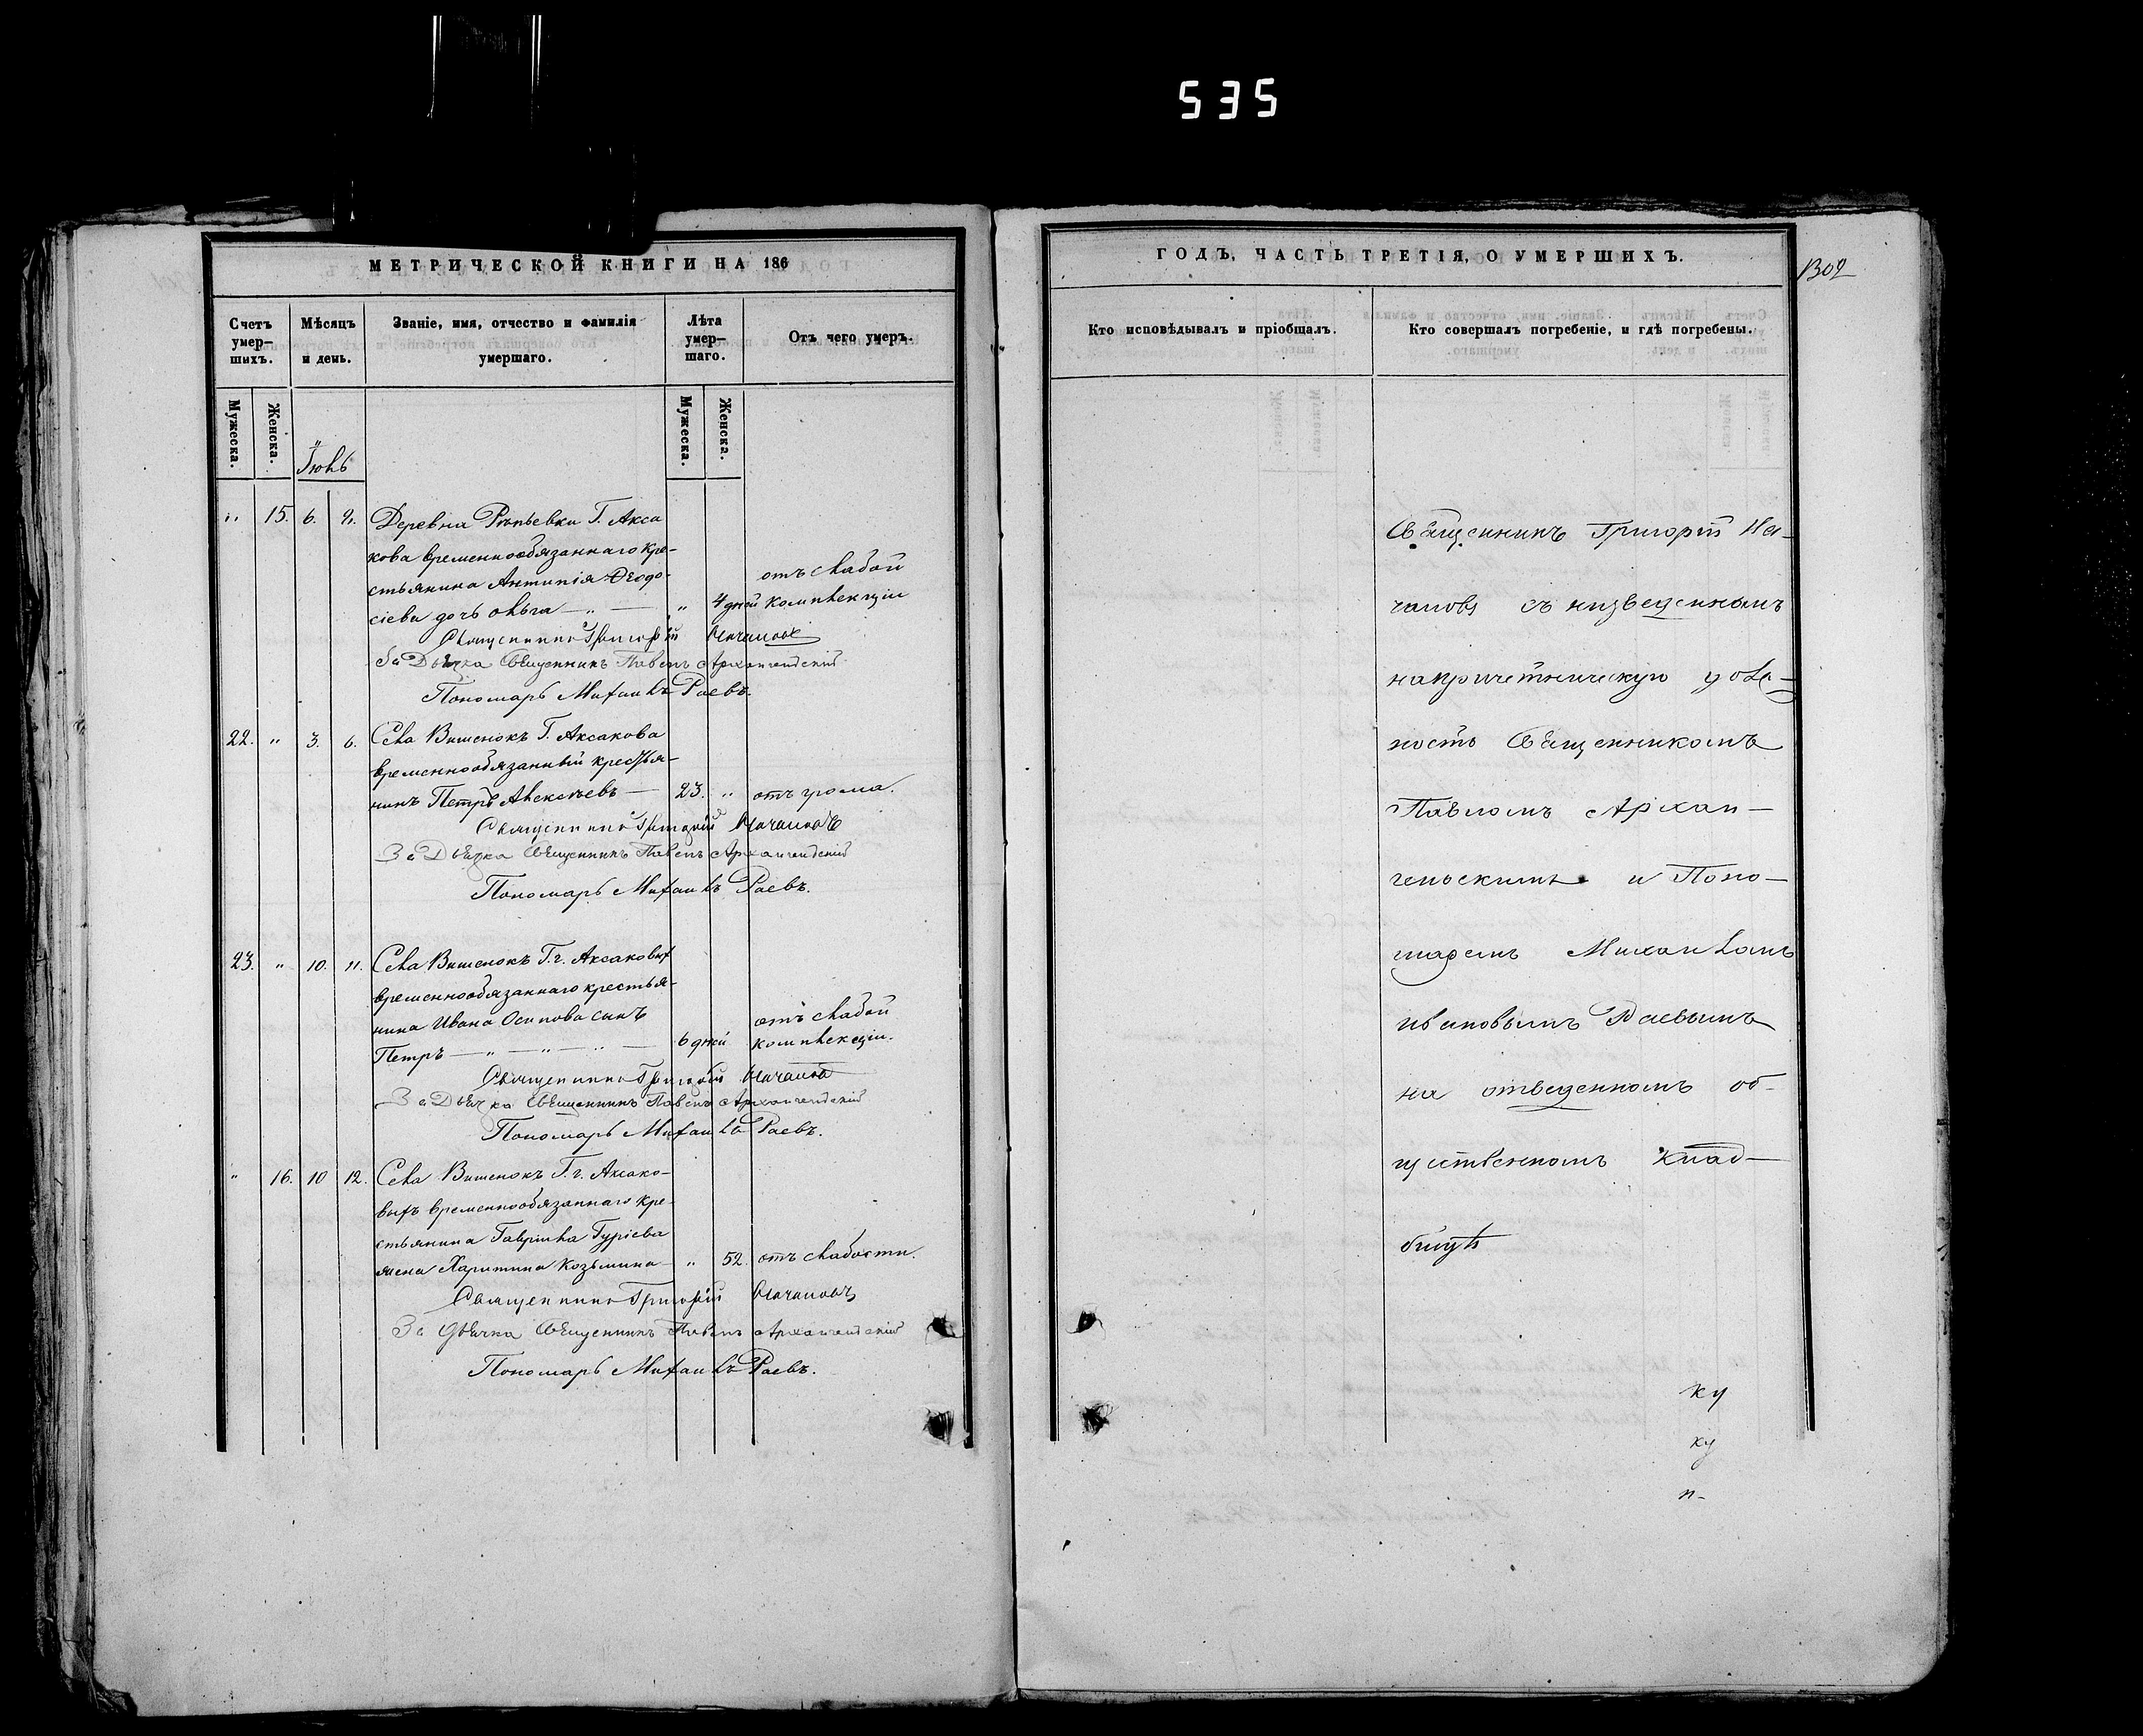 535
МЕТРИЧЕСКОЙ КНИГИ НА 186
Счетъ умер-шихъ.
Мѣсяцъ и день.
Званіе, имя, отчество и фамилія умершаго.
Лѣта умер-шаго.
Отъ чего умеръ.
Мужеска.
Женска.
Мужеска.
Женска.
Іюнь
" 15. 6. 9. Деревни Репьевки Г. Акса
кова временнообязаннаго кре-
стьянина Антипія Ѳеодо-
сіева дочь Ольга — " — " 4 дней отъ слабой комплекціи
Священникъ Григорій
За Дьячка Священникъ Павелъ Архангельскій
Пономарь Михаилъ Раевъ.
22. " 3. 6. Села Вишенокъ Г. Аксакова
временнообязанный крестья-
нинъ Петръ Алексѣевъ — 23. " отъ грома.
Священникъ Григорій
За Дьячка Священникъ Павелъ Архангельскій
Пономарь Михаилъ Раевъ.
23. " 10. 11. Села Вишенокъ Г.г. Аксаковыхъ
временнообязаннаго крестья-
нина Ивана Осипова сынъ
Петръ — " — " — " — 6 дней отъ слабой комплекціи.
Священникъ Григорій
За Дьячка Священникъ Павелъ Архангельскій
Пономарь Михаилъ Раевъ.
" 16. 10 12. Села Вишенокъ Г.г. Аксако-
выхъ временнообязаннаго кре-
стьянина Гавріила Гуріева
жена Харитина Козьмина — " 52. отъ слабости.
Священникъ Григорій
За Дьячка Священникъ Павелъ Архангельскій
Пономарь Михаилъ Раевъ.
ГОДЪ, ЧАСТЬ ТРЕТІЯ, О УМЕРШИХЪ.
1302
Кто исповѣдывалъ и пріобщалъ.
Кто совершалъ погребеніе, и гдѣ погребены.
Священникъ Григорій
съ низведеннымъ
на причетническую долж-
ность Священникомъ
Павломъ Архан-
гельскимъ и Поно-
маремъ Михаиломъ
Ивановымъ Раевымъ
на отведенномъ об-
щественномъ клад-
бищѣ
ку
ку
п-